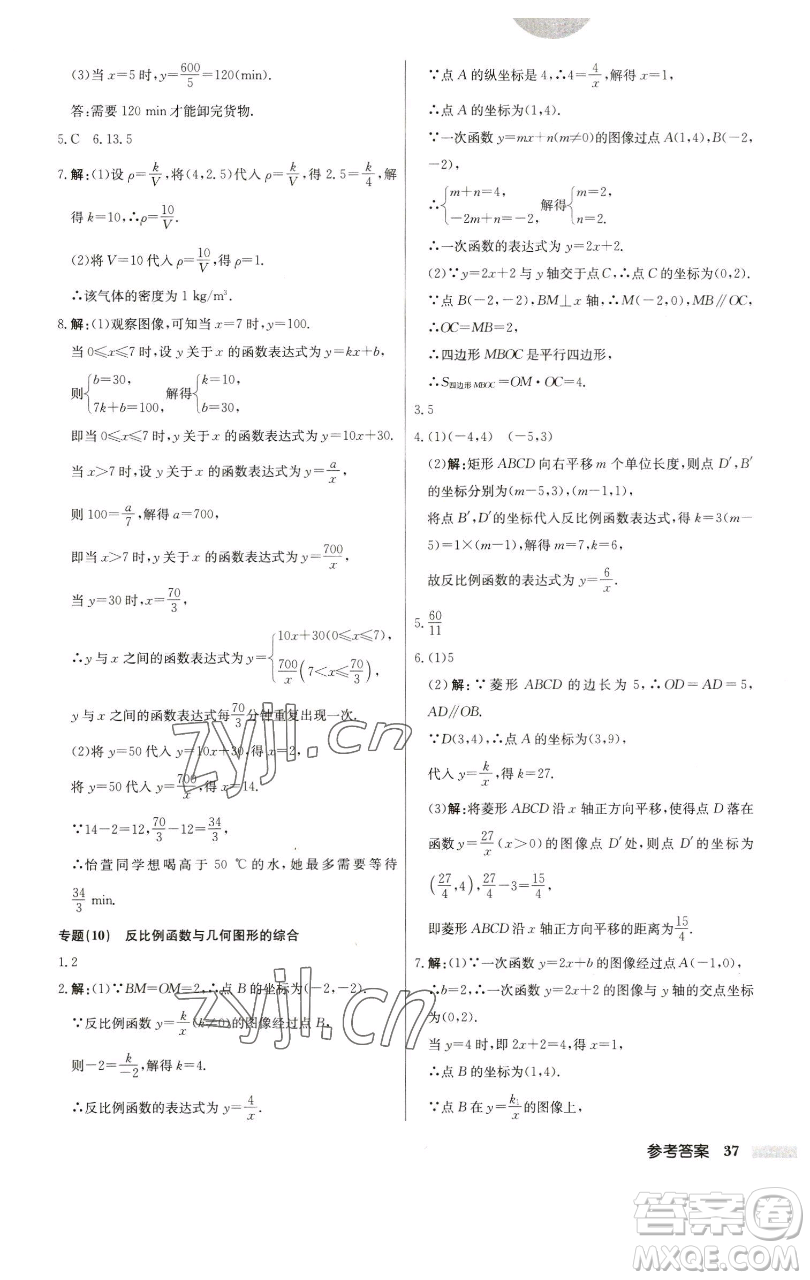 (3)当 x=5 时,y=600/5=120(min).
答:需要 120 min 才能卸完货物.
5.C 6.13.5
7.解:(1)设 ρ=k/V,将(4,2.5)代入 ρ=k/V,得 2.5=k/4,解
得 k=10,∴ρ=10/V.
(2)将 V=10 代入 ρ=10/V,得 ρ=1.
∴该气体的密度为 1 kg/m³.
8.解:(1)观察图像,可知当 x=7 时,y=100.
当 0≤x≤7 时,设 y 关于 x 的函数表达式为 y=kx+b,
则{b=30, 7k+b=100, 解得{k=10, b=30.
即当 0≤x≤7 时,y 关于 x 的函数表达式为 y=10x+30.
当 x>7 时,设 y 关于 x 的函数表达式为 y=a/x,
则 100=a/7,解得 a=700,
即当 x>7 时,y 关于 x 的函数表达式为 y=700/x.
当 y=30 时,x=70/3,
∴y 与 x 之间的函数表达式为 y={10x+30(0≤x≤7), 700/x(7<x≤70/3),
y 与 x 之间的函数表达式每70/3分钟重复出现一次.
(2)将 y=50 代入 y=10x+30,得 x=2,
将 y=50 代入 y=700/x,得 x=14.
∵14-2=12,70/3-12=34/3,
∴怡萱同学想喝高于 50 ℃的水,她最多需要等待
34/3 min.
专题(10) 反比例函数与几何图形的综合
1.2
2.解:(1)∵BM=OM=2,∴点 B 的坐标为(-2,-2).
∵反比例函数 y=k/x(k≠0)的图像经过点 B,
则-2=k/-2,解得 k=4.
∴反比例函数的表达式为 y=4/x.
∵点 A 的纵坐标是 4,∴4=4/x,解得 x=1,
∴点 A 的坐标为(1,4).
∵一次函数 y=mx+n(m≠0)的图像过点 A(1,4),B(-2,
-2),
∴{m+n=4, -2m+n=-2, 解得{m=2, n=2.
∴一次函数的表达式为 y=2x+2.
(2)∵y=2x+2 与 y 轴交于点 C,∴点 C 的坐标为(0,2).
∵点 B(-2,-2),BM⊥x 轴,∴M(-2,0),MB∥OC,
∴OC=MB=2,
∴四边形 MBOC 是平行四边形,
∴S四边形MBOC=OM·OC=4.
3.5
4.(1)(-4,4) (-5,3)
(2)解:矩形 ABCD 向右平移 m 个单位长度,则点 D′,B′
的坐标分别为(m-5,3),(m-1,1),
将点 B′,D′的坐标代入反比例函数表达式,得 k=3(m-
5)=1×(m-1),解得 m=7,k=6,
故反比例函数的表达式为 y=6/x.
5.60/11
6.(1)5
(2)解:∵菱形 ABCD 的边长为 5,∴OD=AD=5,
AD∥OB.
∵D(3,4),∴点 A 的坐标为(3,9),
代入 y=k/x,得 k=27.
(3)解:将菱形 ABCD 沿 x 轴正方向平移,使得点 D 落在
函数 y=27/x(x>0)的图像点 D′处,则点 D′的坐标为
(27/4,4),27/4-3=15/4,
即菱形 ABCD 沿 x 轴正方向平移的距离为15/4.
7.解:(1)∵一次函数 y=2x+b 的图像经过点 A(-1,0),
∴b=2,∴一次函数 y=2x+2 的图像与 y 轴的交点坐标
为(0,2).
当 y=4 时,即 2x+2=4,得 x=1,
∴点 B 的坐标为(1,4).
∵点 B 在 y=k/x 的图像上,
参考答案 37
zyjl.cn
zyjl.cn
答案卷
MXQE.COM